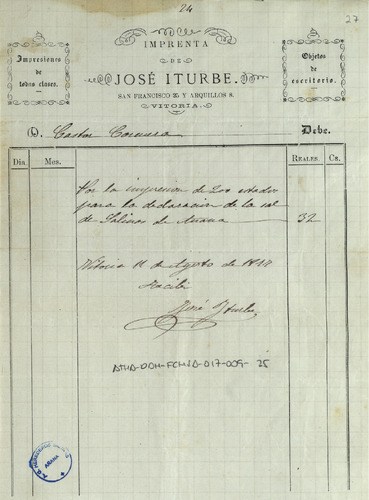 24
27
IMPRENTA
DE
JOSÉ ITURBE.
SAN FRANCISCO 2 Y ARQUILLOS 8.
VITORIA.
Impresiones
de
todas clases.
Objetos
de
escritorio.
D. Castor Debe.
Dia. Mes. REALES. Cs.
Por la impresion de 200 estados
para la declaracion de la sal
de Salinas de Añana 32
Vitoria 11 de Agosto de
Recibí
José Iturbe
ATHA-DOH-FCMVA-017-009- 25
AÑANA